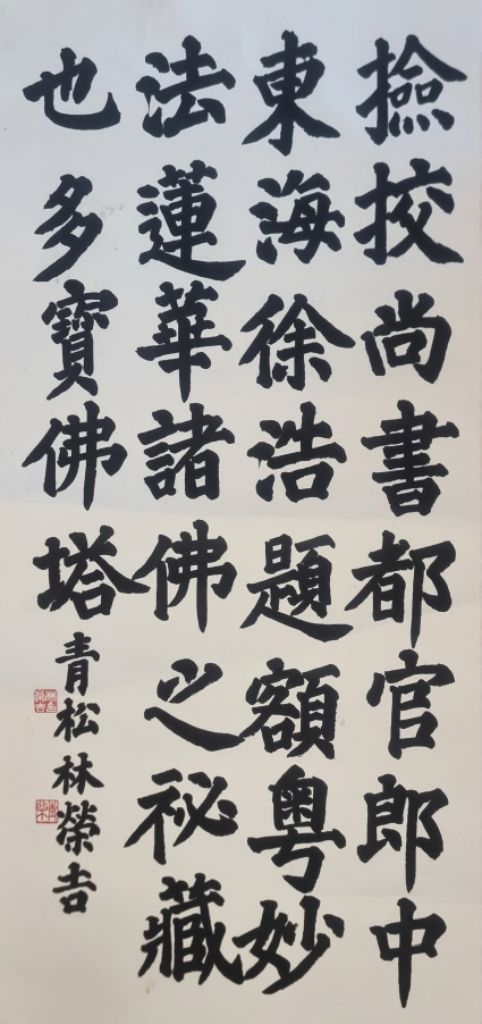 撿挍尚書都官郎中
東海徐浩題額粵妙
法蓮華諸佛之祕藏
也多寶佛塔
青松林榮吉